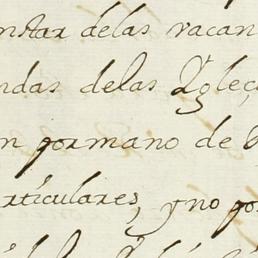 nstar delas vacan
ndas delas Ygleç
n germano de
rticulares, y no po